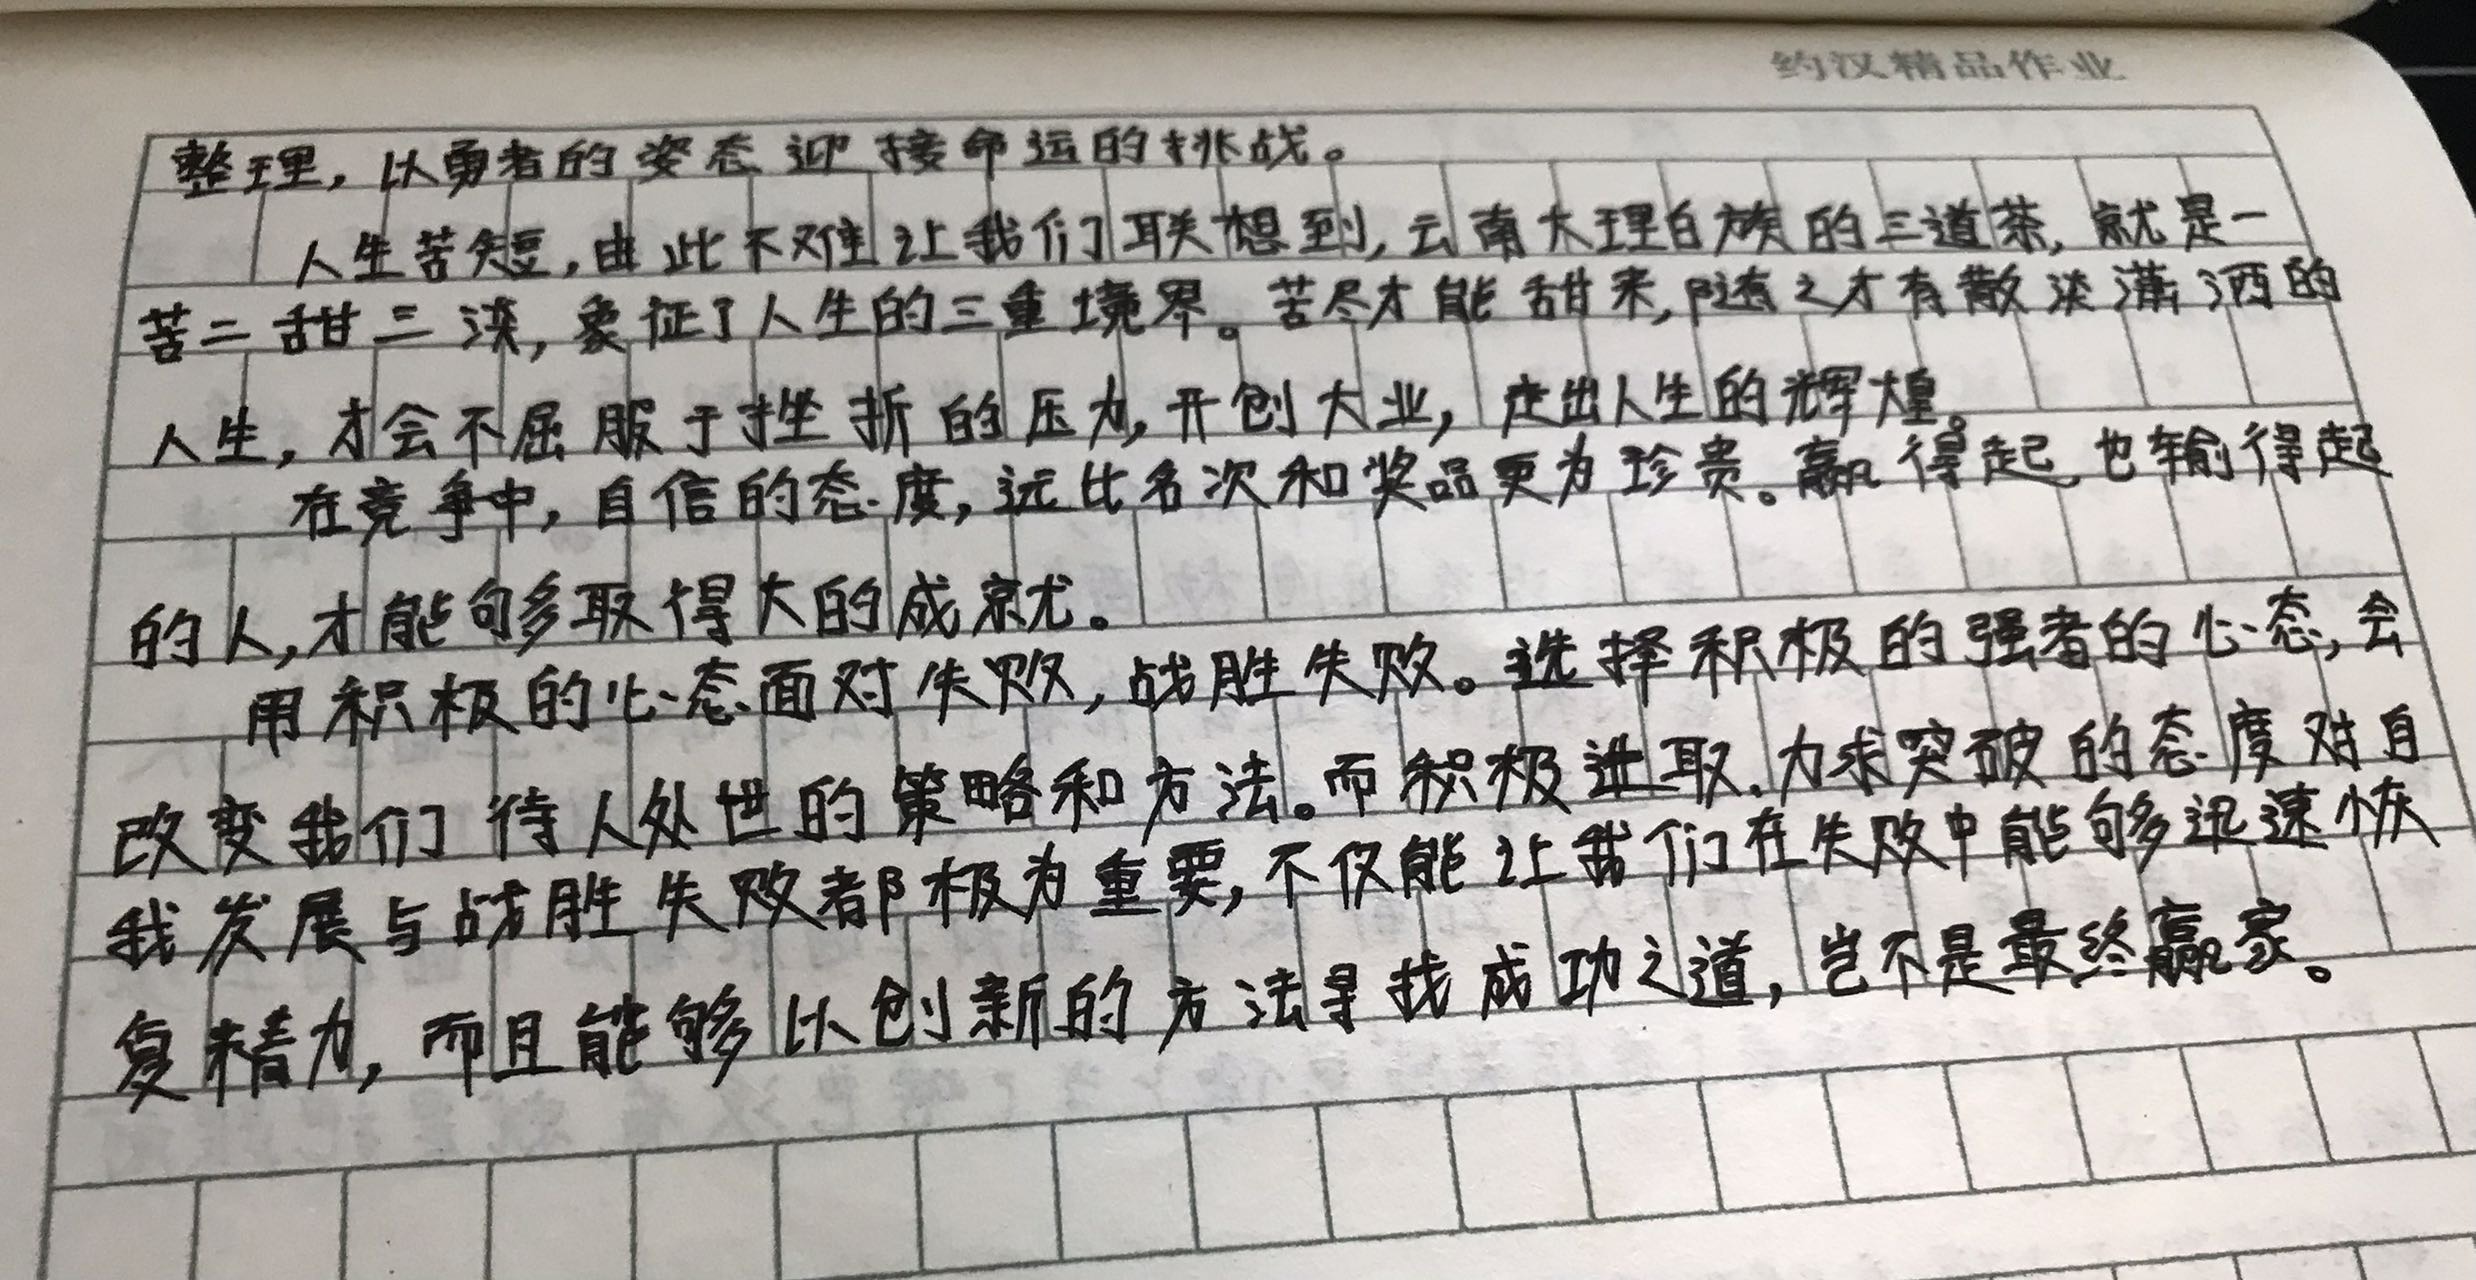 约汉精品作业
整理，以勇者的姿态迎接命运的挑战。
人生苦短，由此不难让我们联想到，云南大理白族的三道茶，就是一
苦二甜三淡，象征了人生的三重境界。苦尽才能甜来，随之才有散淡潇洒的
人生，才会不屈服于挫折的压力，开创大业，走出人生的辉煌。
在竞争中，自信的态度，远比名次和奖品更为珍贵。赢得起，也输得起
的人，才能够多取得大的成就。
用积极的心态面对失败，战胜失败。选择积极的强者的心态，会
改变我们待人处世的策略和方法。而积极进取、力求突破的态度对自
我发展与战胜失败都极为重要，不仅能让我们在失败中能够迅速恢
复精力，而且能够以创新的方法寻找成功之道，岂不是最终赢家。